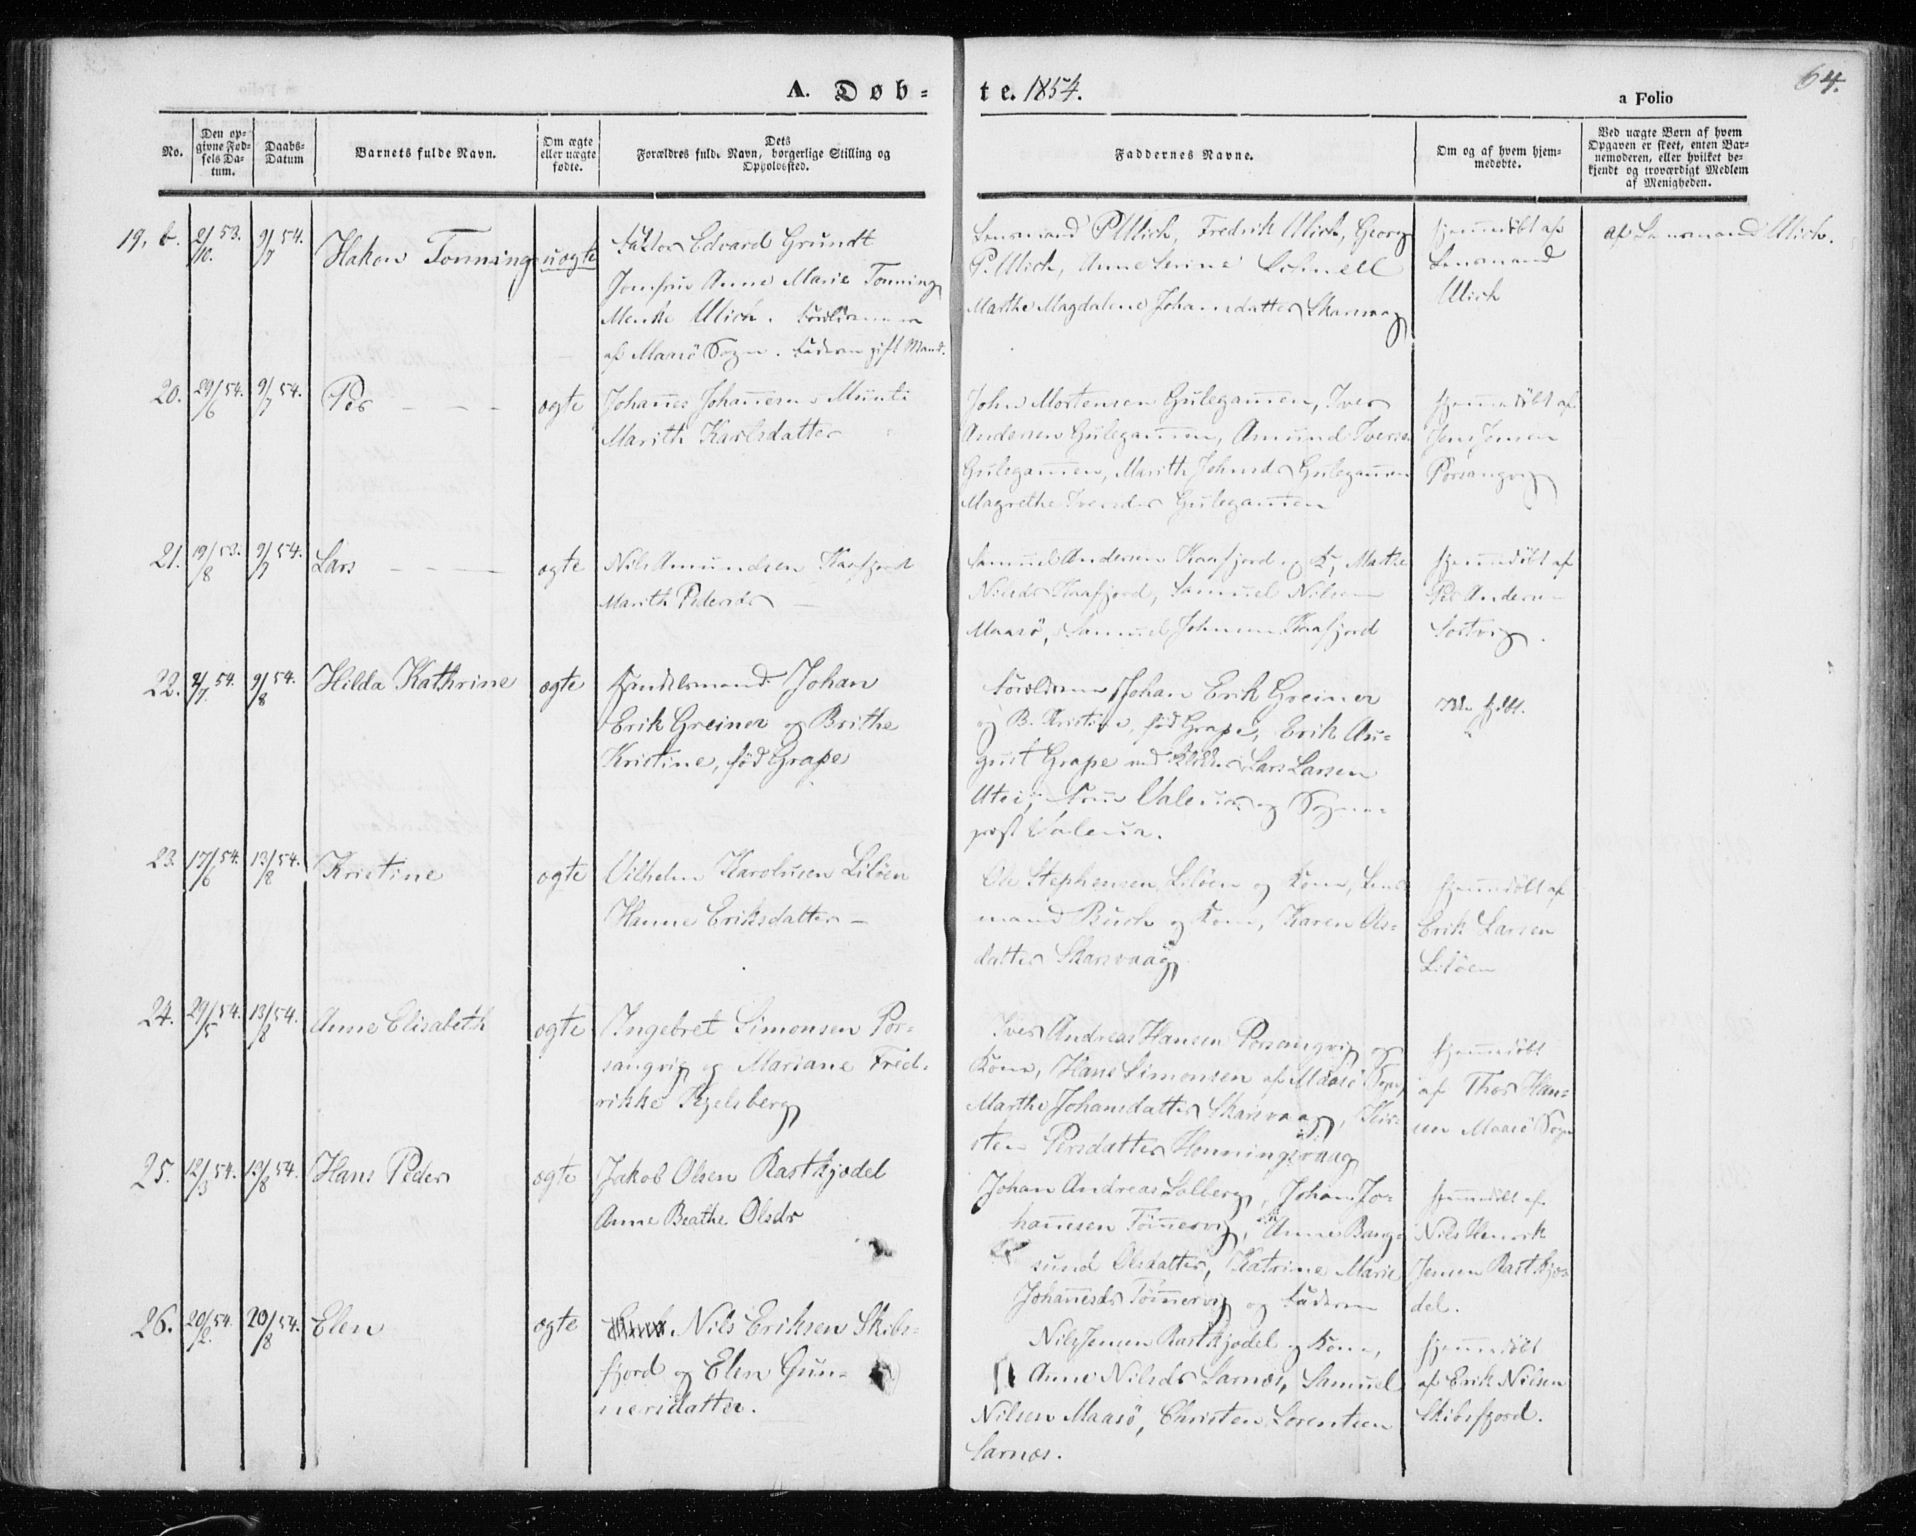 A. Døb-
te. 1854.
a Folio
64.
No.
Den op-
givne Fød-
sels Da-
tum.
Daabs-
Datum
Barnets fulde Navn.
Om ægte
eller uægte
fødte.
Dets
Forældres fulde Navn, borgerlige Stilling og
Opholdssted.
Faddernes Navne.
Om og af hvem hjem-
medøbte.
Ved uægte Børn af hvem
Opgaven er skeet, enten Bar-
nemoderen, eller hvilket be-
kjendt og troværdigt Medlem
af Menigheden.
19, b.
2/10 53.
9/7 54.
Hakon Tonning
uægte
Faktor Edvard Grundt
Jomfru Anne Marie Tonning
Menke Ulich. Forældrene
af Maasö Sogn. Faderen gift Mand.
Lensmand P Ulich, Fredrik Ulich, Georg
P. Ulich, Anne Serine Schnell
Marthe Magdalene Johansdatter Skarsvaag
Hjemmedöbt af
Lensmand
Ulich
af Lensmand Ulich.
20.
29/6 54.
9/7 54.
Per
ægte
Johannes Johannesen Munti
Marith Karlsdatter
John Mortensen Gulegammen, Iver
Andersen Gulegammen, Amund Iversen
Gulegammen, Marith Johnsdr Gulegammen
Magrethe Iversdr Gulegammen
Hjemmedöbt af
Jens Jensen
Porsangvig
21.
19/8 53.
9/7 54.
Lars
ægte
Nils Amundsen Kaafjord
Marith Pedersdr
Samuel Andersen Kaafjord og K, Marthe
Nilsdr Kaafjord, Samuel Nilsen
Maasö, Samuel Johnsen Kaafjord
Hjemmedöbt af
Per Andersen
Sortvig.
22.
2/7 54.
9/8 54.
Hilda Kathrine
ægte
Handelsmand Johan
Erik Greiner og Brithe
Kristine, född Grape
Forældrene Johan Erik Greiner
og B. Kristine, född Grape, Erik Au-
gust Grape med Lars Larsen
Utsi, Frue Valeur og Sogne-
præst Valeur.
23.
17/6 54.
13/8 54.
Kristine
ægte
Vilhelm Karolusen Lilöen
Hanne Eriksdatter
Ole Stephensen Lilöen og Kone, Lens
mand Buch og Kone, Karen Ols-
datter Skarsvaag
Hjemmedöbt af
Erik Larsen
Lilöen
24.
29/5 54.
13/8 54.
Anne Elisabeth
ægte
Ingebret Simonsen Por-
sangvig og Mariane Fred-
rikke Pegelsberg
Iver Andreas Hansen Porsangvig og
Kone, Hans Simonsen af Maasö Sogn,
Marthe Johansdatter Skarsvaag, Kir-
sten Persdatter Honningsvaag
Hjemmedöbt
af Thor Han-
sen Maasö Sogn
25.
12/3 54.
13/8 54.
Hans Peder
ægte
Jakob Olsen Kastkjodel
Anne Beathe Olsdr
Johan Andreas Solberg, Johan Jo-
hannesen Tömmervig, Anne Bang-
sund Olsdatter, Katrine Marie
Johannesdr Tömmervig og Faderen
Hjemmedöbt af
Nils Henrik
Jensen Kastkjo-
del.
26.
20/2 54.
20/8 54.
Elen
ægte
Nils Eriksen Skibs-
fjord og Elen Gun-
nersdatter.
Nils Jensen Kastkjodel og Kone,
Anne Nilsdr Sarnæs, Samuel
Nilsen Maasö, Christen Lorentsen
Sarnæs.
Hjemmedöbt
af Erik Nilsen
Skibsfjord.